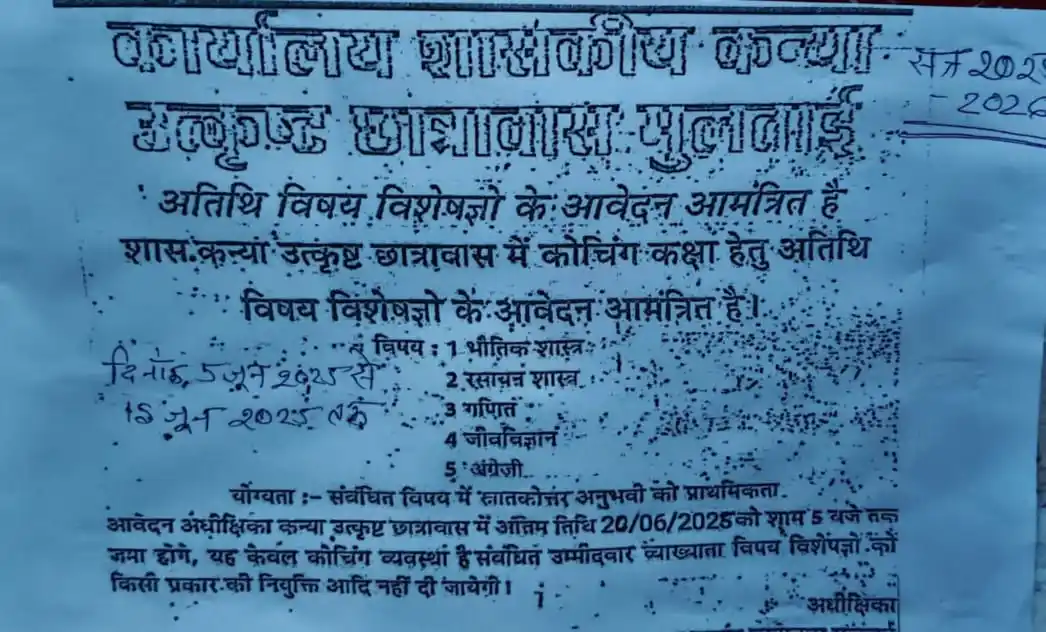 कार्यालय शासकीय कन्या
उत्कृष्ट छात्रावास मुलताई
सत्र 2025
- 2026
अतिथि विषय विशेषज्ञो के आवेदन आमंत्रित है
शास.कन्या उत्कृष्ट छात्रावास में कोचिंग कक्षा हेतु अतिथि
विषय विशेषज्ञो के आवेदन आमंत्रित है।
विषय : 1 भौतिक शास्त्र
2 रसायन शास्त्र
3 गणित
4 जीवविज्ञान
5 अंग्रेजी
दिनांक 5 जून 2025 से
15 जून 2025 तक
योग्यता :- संबंधित विषय में स्नातकोत्तर अनुभवी को प्राथमिकता.
आवेदन अधीक्षिका कन्या उत्कृष्ट छात्रावास में अंतिम तिथि 20/06/2025 को शाम 5 बजे तक
जमा होगे, यह केवल कोचिंग व्यवस्था है संबंधित उम्मीदवार व्याख्याता विषय विशेषज्ञो को
किसी प्रकार की नियुक्ति आदि नहीं दी जायेगी।
अधीक्षिका